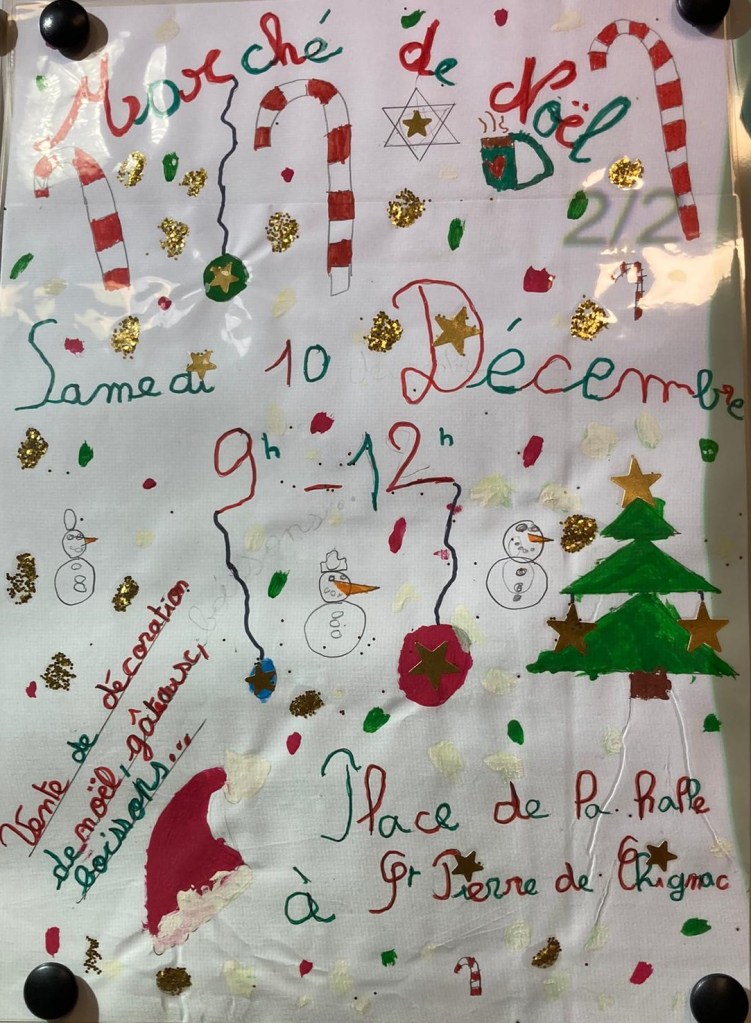 Marché de Noël
2/2
Samedi 10 Décembre
9h - 12h
Vente de décoration
de noël, gâteaux,
boissons...
Place de la halle
à St Pierre de Chignac